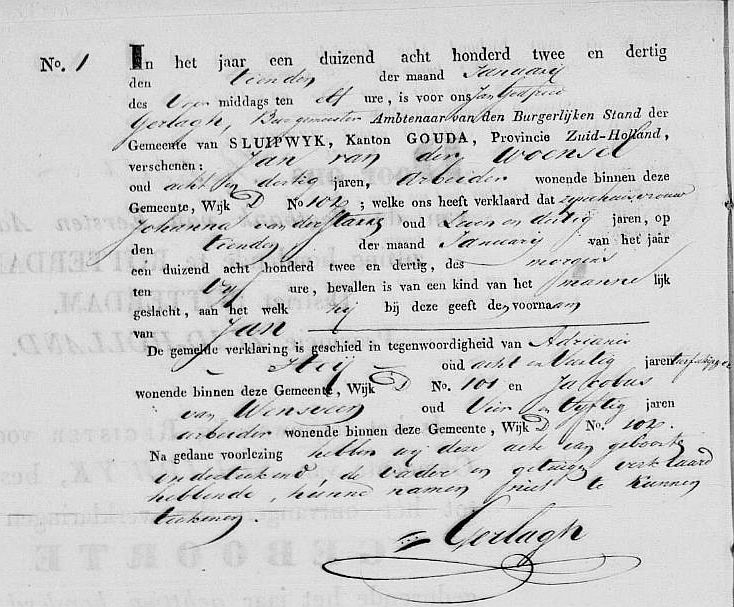 No. 1 In het jaar een duizend acht honderd twee en dertig
den tienden der maand Januarij
des Voor middags ten elf ure, is voor ons Jan
Gerlagh, Burgemeester Ambtenaar van den Burgerlijken Stand der
Gemeente van SLUIPWYK, Kanton GOUDA, Provincie Zuid-Holland,
verschenen: Jan van den Woensel
oud acht en dertig jaren, arbeider wonende binnen deze
Gemeente, Wijk D No. 102; welke ons heeft verklaard dat zijne huisvrouw
Johanna van der oud Zeven en dertig jaren, op
den tienden der maand Januarij van het jaar
een duizend acht honderd twee en dertig, des morgens
ten ure, bevallen is van een kind van het manne lijk
geslacht, aan het welk hij bij deze geeft den voornaam
van Jan
De gemelde verklaring is geschied in tegenwoordigheid van Adrianus
oud acht en Veertig jaren
wonende binnen deze Gemeente, Wijk D No. 101 en Jacobus
van Wensveen oud Vier en vyftig jaren
arbeider wonende binnen deze Gemeente, Wijk D No. 102.
Na gedane voorlezing hebben wij deze acte van geboorte
onderteekend, de vader en getuigen verklaard
hebbende, hunne namen niet te kunnen
teekenen.
Gerlagh